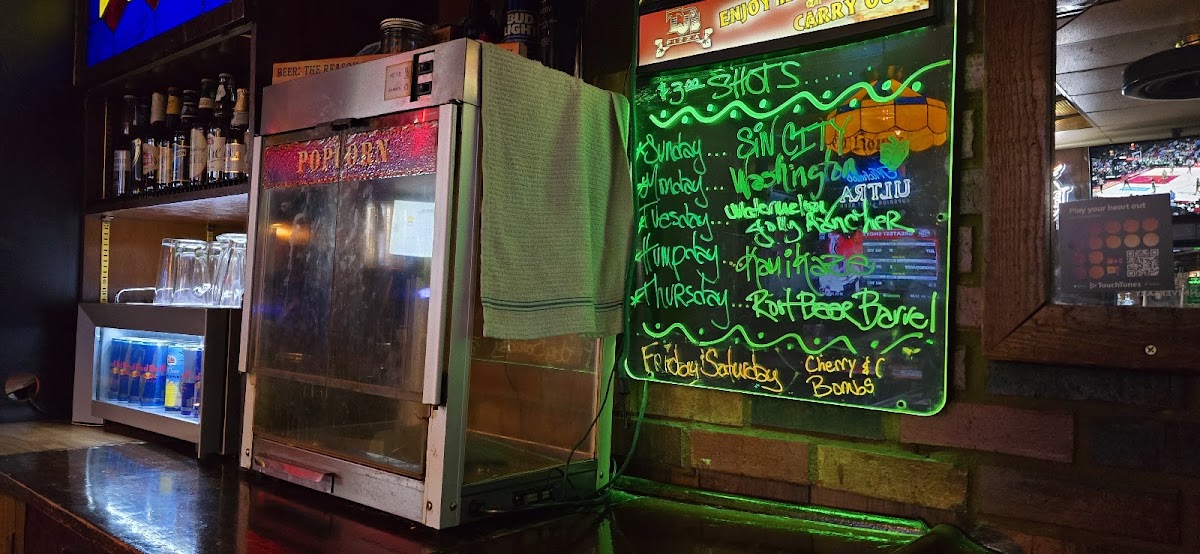 BUD
LIGHT
BEER: THE REASON
POPCORN
PIZZA
ENJOY
CARRY OU
$3.00 SHOTS......
*Sunday... SiN CITY
*Monday... Washington
*Tuesday... Watermelon
Jolly Rancher
*Humpday... Kamikaze
*Thursday... Root Beer Barrel
Friday Saturday Cherry & C
Bombs
ULTRA
Play your heart out
TouchTunes